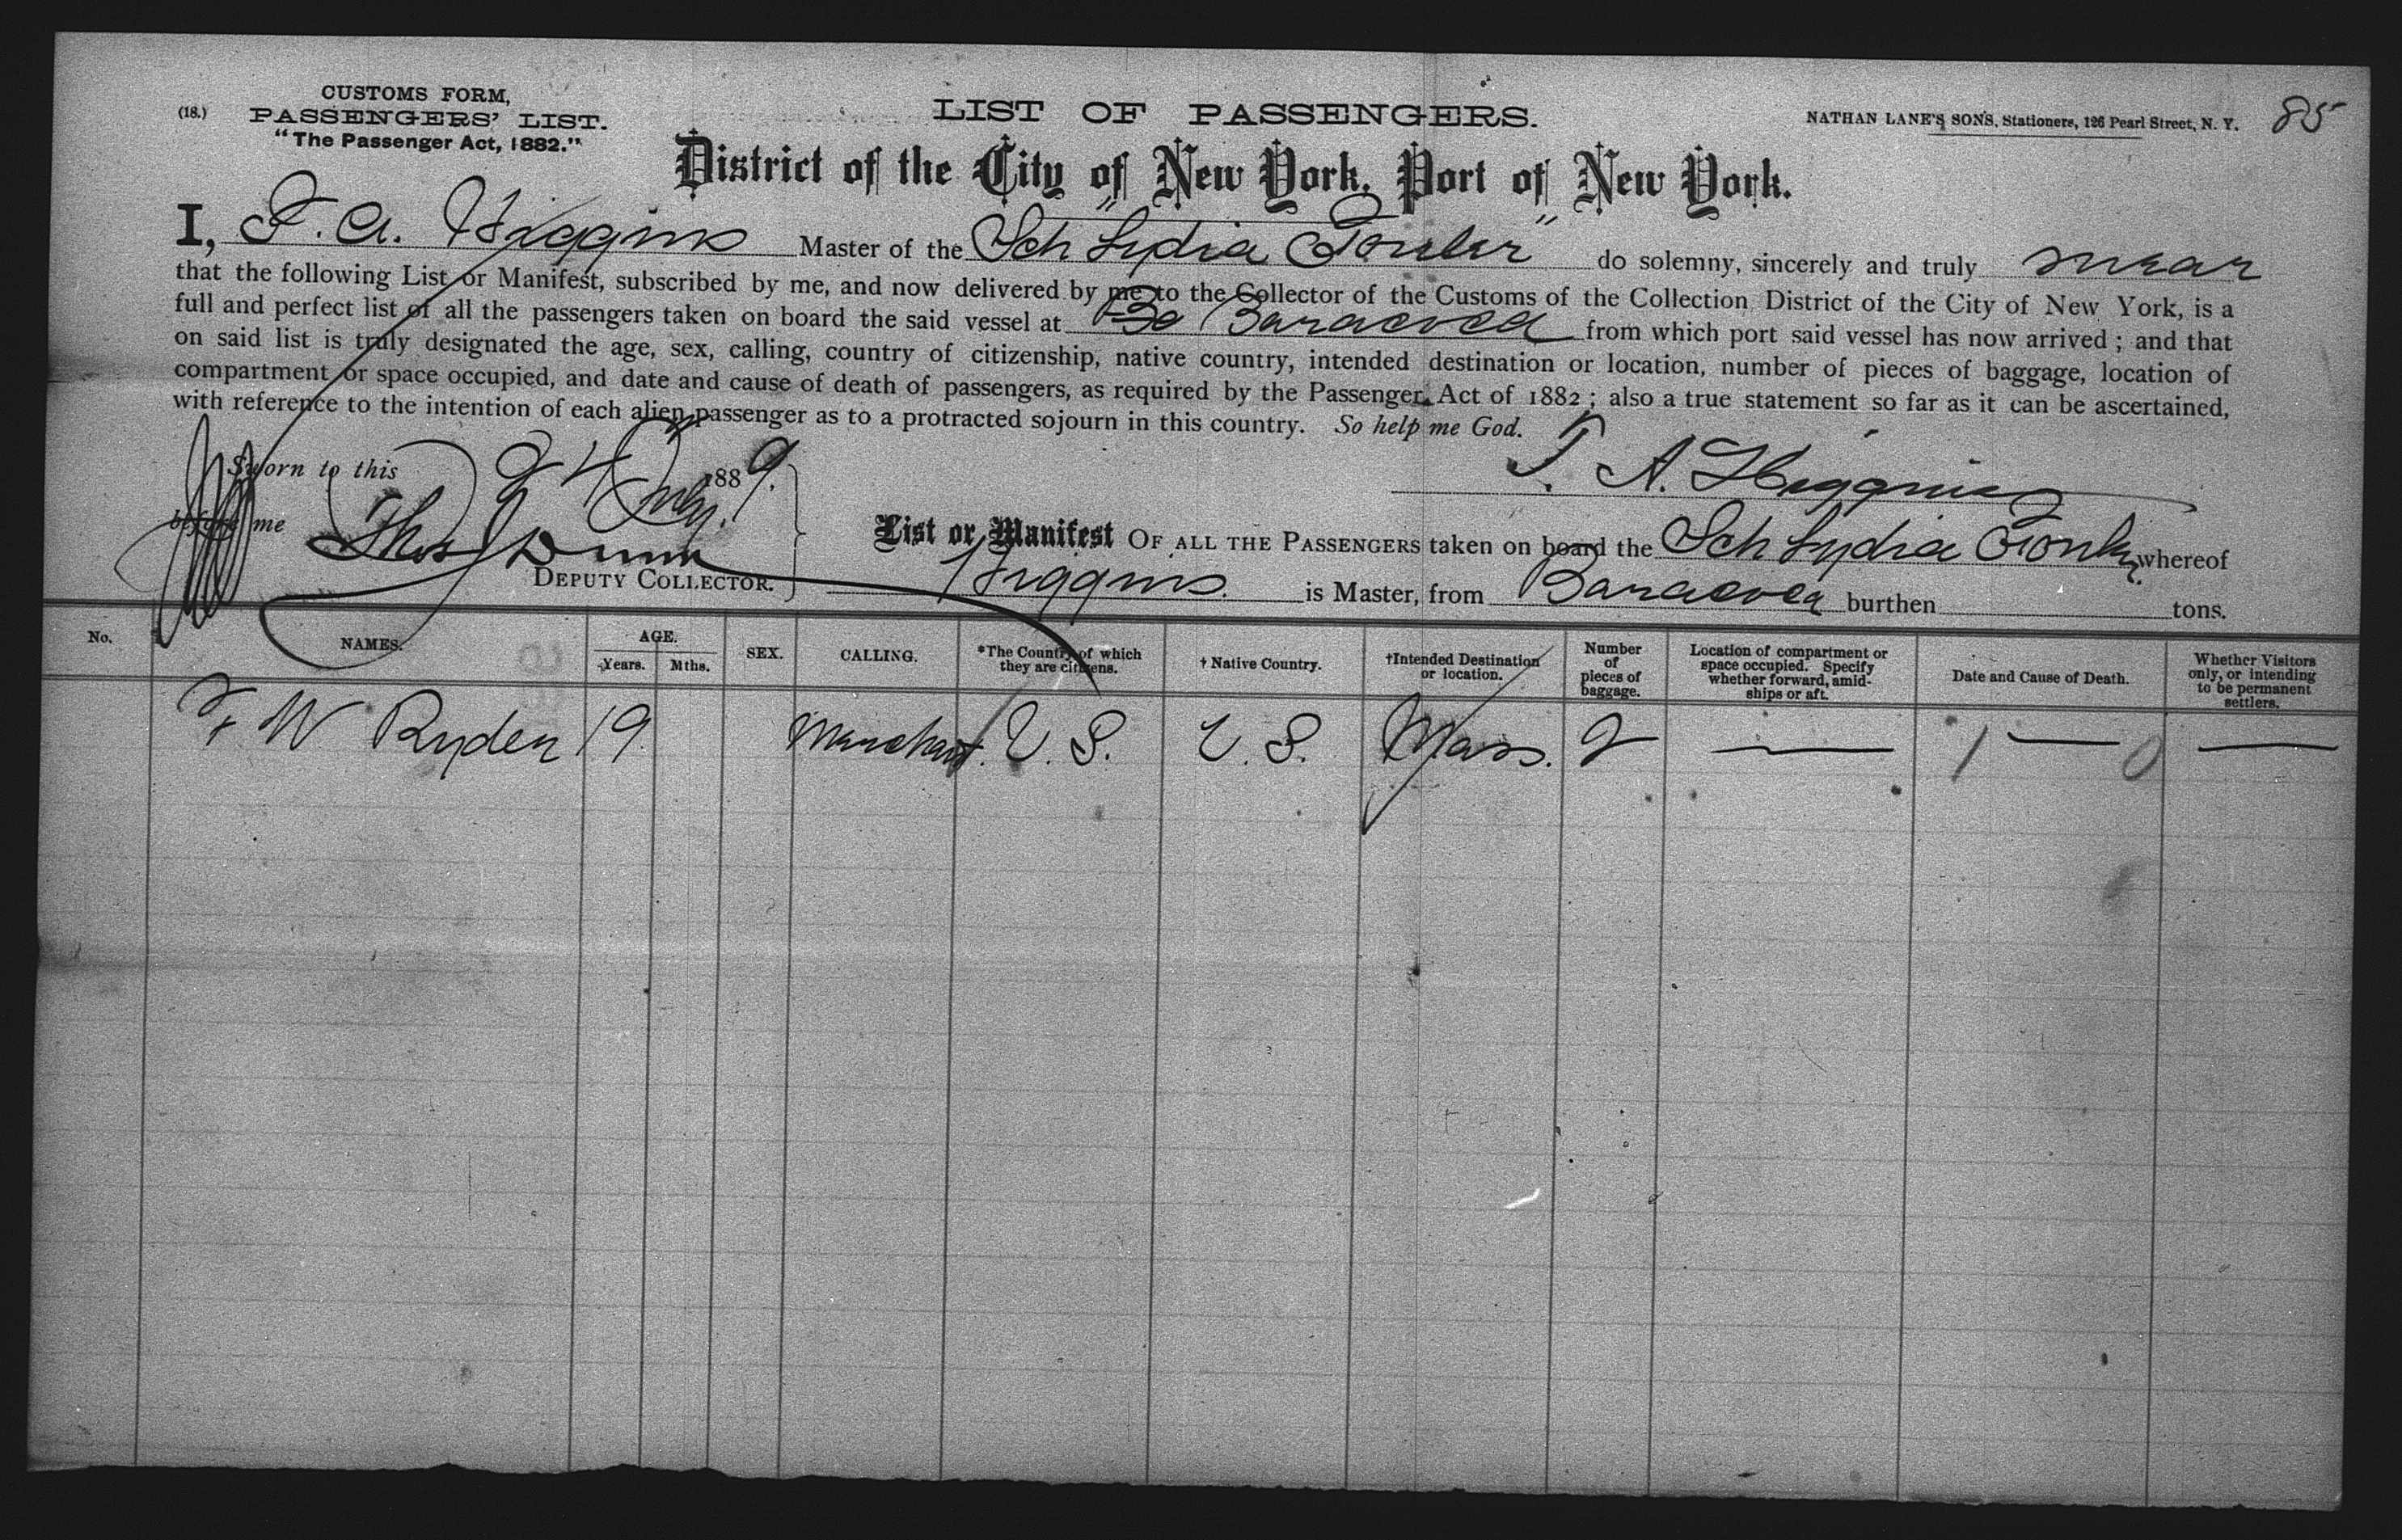 (18.) CUSTOMS FORM,
PASSENGERS' LIST.
"The Passenger Act, 1882."
LIST OF PASSENGERS.
NATHAN LANE'S SONS, Stationers, 126 Pearl Street, N. Y. 85
District of the City of New York, Port of New York.
I, T. A. Higgins Master of the Sch "Lydia Fowler" do solemny, sincerely and truly swear
that the following List or Manifest, subscribed by me, and now delivered by me to the Collector of the Customs of the Collection District of the City of New York, is a
full and perfect list of all the passengers taken on board the said vessel at Baracoa from which port said vessel has now arrived ; and that
on said list is truly designated the age, sex, calling, country of citizenship, native country, intended destination or location, number of pieces of baggage, location of
compartment or space occupied, and date and cause of death of passengers, as required by the Passenger Act of 1882 ; also a true statement so far as it can be ascertained,
with reference to the intention of each alien passenger as to a protracted sojourn in this country. So help me God.
Sworn to this 24 1889.
T. A. Higgins
before me Thos Dunn
DEPUTY COLLECTOR.
List or Manifest OF ALL THE PASSENGERS taken on board the Sch Lydia whereof
Higgins is Master, from Baracoa burthen tons.
No. NAMES. AGE. Years. Mths. SEX. CALLING. *The Country of which they are citizens. † Native Country. †Intended Destination or location. Number of pieces of baggage. Location of compartment or space occupied. Specify whether forward, amidships or aft. Date and Cause of Death. Whether Visitors only, or intending to be permanent settlers.
W Ryder 19 Merchant. U. S. U. S. Mass. 2 — 1 — 0 —